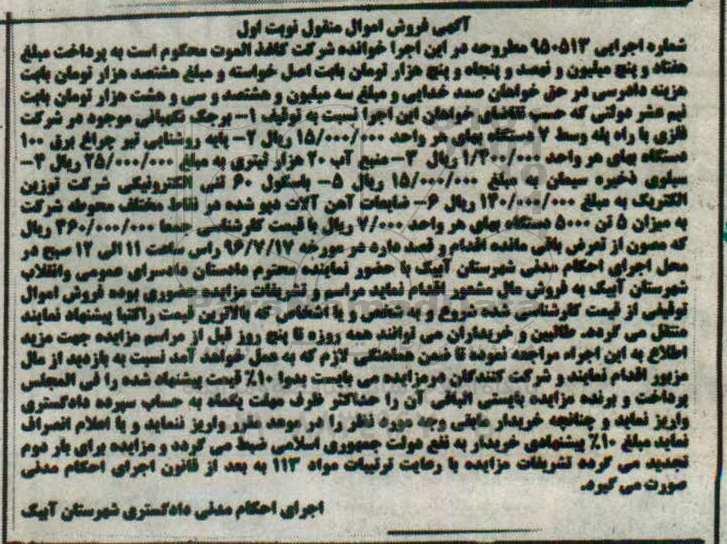 آگهی فروش اموال منقول نوبت اول
شماره اجرایی ۹۵۰۵۱۳ مطروحه در این اجرا خوانده شرکت کاغذ الموت محکوم است به پرداخت مبلغ
هفتاد و پنج میلیون و نهصد و پنجاه و پنج هزار تومان بابت اصل خواسته و مبلغ هشتصد هزار تومان بابت
هزینه دادرسی در حق خواهان صمد خدایی و مبلغ سه میلیون و هشتصد و سی و هشت هزار تومان بابت
نیم عشر دولتی که حسب تقاضای خواهان این اجرا نسبت به توقیف ۱- برجک نگهبانی موجود در شرکت
فلزی با راه پله وسط ۷ دستگاه بهای هر واحد ۱۵/۰۰۰/۰۰۰ ریال ۲- پایه روشنایی تیر چراغ برق ۱۰۰
دستگاه بهای هر واحد ۱/۲۰۰/۰۰۰ ریال ۳- منبع آب ۲۰ هزار لیتری به مبلغ ۲۵/۰۰۰/۰۰۰ ریال ۴-
سیلوی ذخیره سیمان به مبلغ ۱۵/۰۰۰/۰۰۰ ریال ۵- باسکول ۶۰ تنی الکترونیکی شرکت توزین
الکتریک به مبلغ ۱۲۰/۰۰۰/۰۰۰ ریال ۶- ضایعات آهن آلات دپو شده در نقاط مختلف محوطه شرکت
به میزان ۵ تن ۵۰۰۰ دستگاه بهای هر واحد ۷/۰۰۰ ریال با قیمت کارشناسی جمعا ۳۶۰/۰۰۰/۰۰۰ ریال
که مصون از تعرض باقی مانده اقدام و قصد دارد در مورخه ۹۶/۷/۱۷ راس ساعت ۱۱ الی ۱۲ صبح در
محل اجرای احکام مدنی شهرستان آبیک با حضور نماینده محترم دادستان دادسرای عمومی وانقلاب
شهرستان آبیک به فروش مال مشهیر اقدام نماید مراسم و تشریفات مزایده حضوری بوده فروش اموال
توقیفی از قیمت کارشناسی شده شروع و به شخص و یا اشخاص که بالاترین قیمت راکتبا پیشنهاد نمایند
منتقل می گردد. طالبین و خریداران می توانند همه روزه تا پنج روز قبل از مراسم مزایده جهت مزید
اطلاع به این اجراء مراجعه نموده تا ضمن هماهنگی لازم که به عمل خواهد آمد نسبت به بازدید از مال
مزبور اقدام نمایند و شرکت کنندگان درمزایده می بایست بدوا ۱۰٪ قیمت پیشنهاد شده را فی المجلس
پرداخت و برنده مزایده بایستی الباقی آن را حداکثر ظرف مهلت یکماه به حساب سپرده دادگستری
واریز نماید و چنانچه خریدار مابقی وجه مورد نظر را در موعد مقرر واریز ننماید و یا اعلام انصراف
نماید مبلغ ۱۰٪ پیشنهادی خریدار به نفع دولت جمهوری اسلامی ضبط می گردد و مزایده برای بار دوم
تجدید می گردد تشریفات مزایده با رعایت ترتیبات مواد ۱۱۳ به بعد از قانون اجرای احکام مدنی
صورت می گیرد.
اجرای احکام مدنی دادگستری شهرستان آبیک